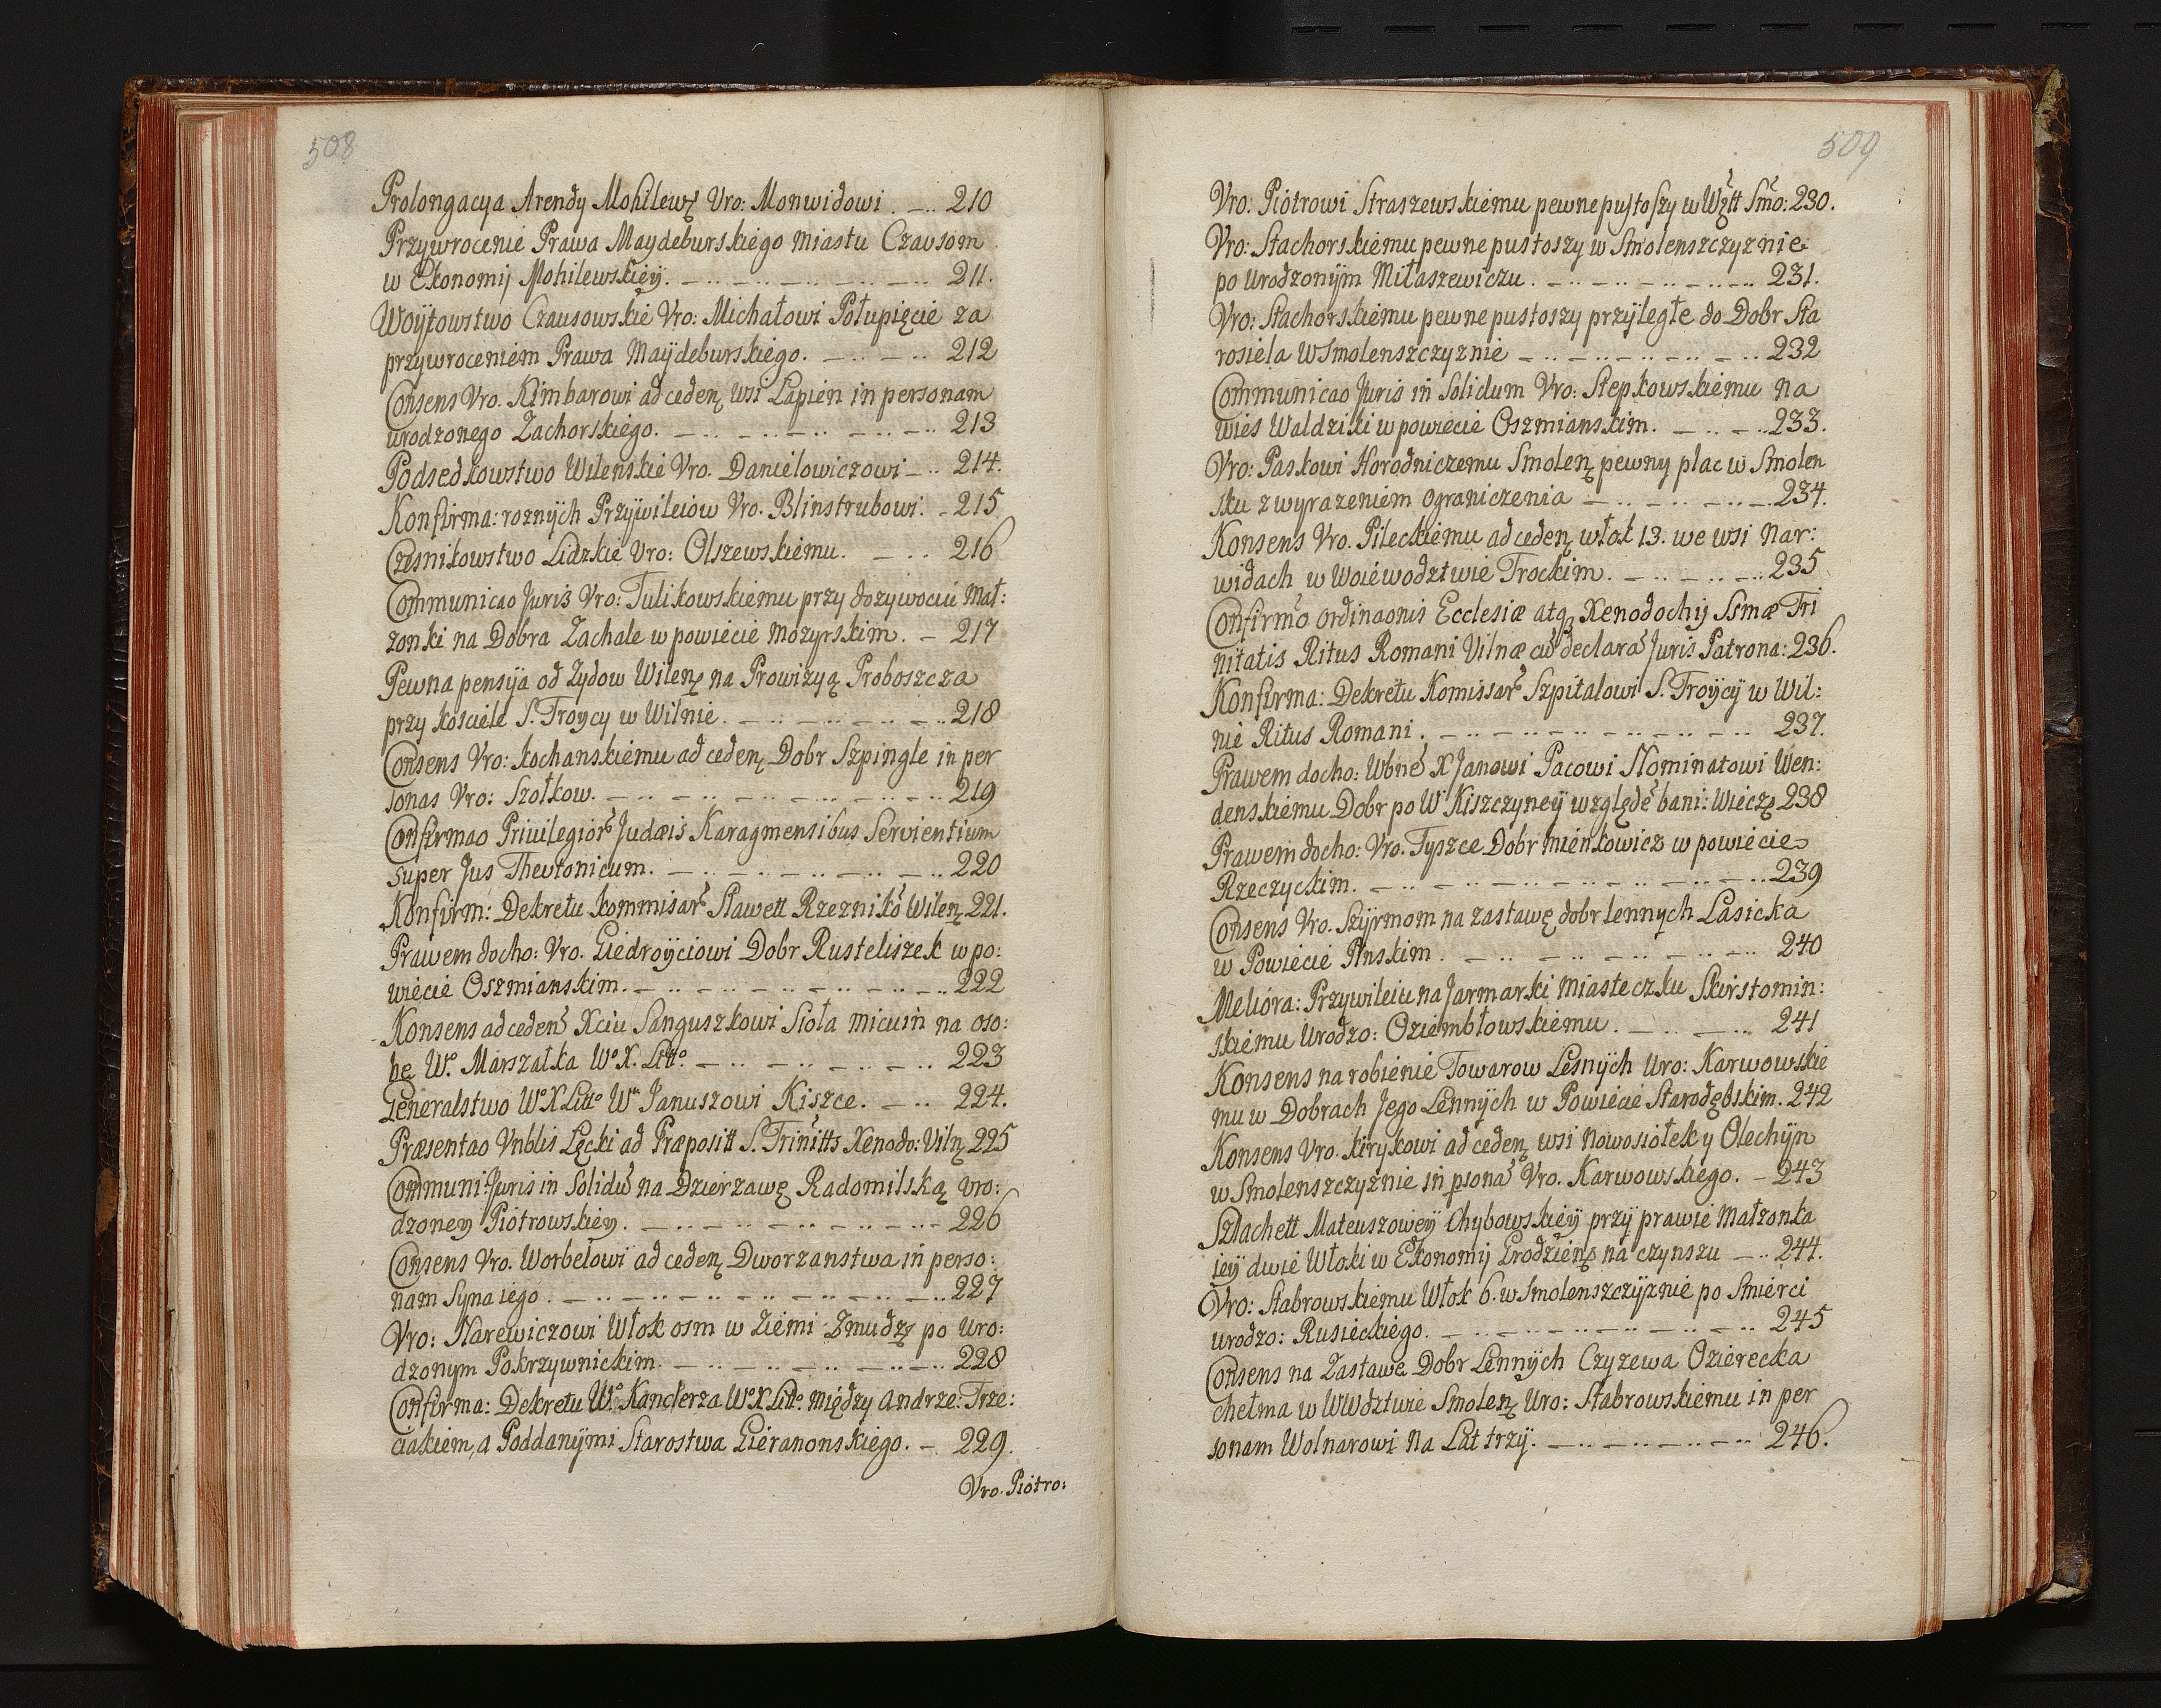 508
Prolongacya Arendy Mohilewę Vro: Monwidowi . _ .. 210
Przywrocenie Prawa Maydeburskiego miastu Czausom
w Ekonomij Mohilewskiey. _ .. _ .. _ .. _ .. 211.
Woÿtowstwo Czausowskie Vro: Michałowi Połupięcie za
przywroceniem Prawa Maÿdeburskiego. _ .. _ .. 212
Consens Vro. Kimbarowi ad cedenę wsi Łapien in personam
urodzonego Zachorskiego. _ .. _ .. _ .. _ .. 213
Podsedkowstwo Wilenskie Vro. Danielowiczowi _ .. 214.
Konfirma: roznÿch Przÿwileiow Vro. Blinstrubowi. _ 215
Czesnikowstwo Lidzkie Vro: Olszewskiemu. _ .. 216
Communicao Juris Vro: Tulikowskiemu przy dozywociu Mał:
zonki na Dobra Zachale w powiecie mozyrskim. _ 217
Pewna pensÿa od Zydow Wilenę na Prowizyą Proboszcza
przy kosciele S. Troycy w Wilnie. _ .. _ .. _ .. 218
Consens Vro: kochanskiemu ad cedenę Dobr Szpingle in per
sonas Vro: Szołkow. _ .. _ .. _ .. _ .. 219
Confirmao Priuilegiorͫ Judæis Karagmensibus Servientium
super Jus Thevtonicum. _ .. _ .. _ .. _ .. 220
Konfirm: Dekretu kommisarͫ Sławett Rzeznikoͫ Wilenę 221.
Prawem docho: Vro. Giedroÿciowi Dobr Rusteliszek w po:
wiecie Oszmianskim. _ .. _ .. _ .. _ .. 222
Konsens ad cedenͫ Xciu Sanguszkowi Sioła micuin na oso:
bę Wº. Marszałka Wº X. Littº. _ .. _ .. _ .. 223
Generalstwo Wº X Littº Wͫ Januszowi Kiszce. _ .. 224.
Præsentao Vnblis Lęcki ad Præpositt S. Trinitts Xenodo: Vilnę 225
Communi: Juris in Soliduͫ na Dzierzawę Radomilską Vro:
dzoney Piotrowskiey. _ .. _ .. _ .. _ .. 226
Consens Vro. Worbelowi ad cedenę Dworzanstwa in perso:
nam Syna iego. _ .. _ .. _ .. _ .. 227
Vro: Narewiczowi Włok osm w Ziemi Zmudzę po Uro:
dzonym Pokrzywnickim. _ .. _ .. _ .. _ .. 228
Confirma: Dekretu Wº. Kanclerza Wº X Littº. między Andrze: Trze:
ciakiem, a Poddanÿmi Starostwa Gieranonskiego. _ 229.
Vro. Piotro:
509
Vro: Piotrowi Straszewskiemu pewne pustoszy w Wztt Smo: 230.
Vro: Stachorskiemu pewne pustoszy w Smolenszczyznie
po Urodzonÿm Miłaszewiczu. _ .. _ .. _ .. _ .. 231.
Vro: Stachorskiemu pewne pustoszy przÿległe do Dobr Sta
rosiela w Smolenszczyznie _ .. _ .. _ .. _ .. 232
Communicao Juris in Solidum Vro: Stepkowskiemu na
wies Waldziki w powiecie Oszmianskim. _ .. _ .. 233.
Vro: Paskowi Horodniczemu Smolenę pewny plac w Smolen
sku z wyrazeniem ograniczenia _ .. _ .. _ .. 234.
Konsens Vro. Pileckiemu ad cedenę włok 13. we wsi Nar:
widach w Woiewodztwie Trockim. _ .. _ .. 235
Confirmͦo Ordinaonis Ecclesiæ atqȝ Xenodochij Ssmæ Tri
nitatis Ritus Romani Vilnæ cuͫ declaraͦ Juris Patrona: 236.
Konfirma: Dekretu Komissarͫ Szpitalowi S. Troÿcÿ w Wil:
nie Ritus Romani. _ .. _ .. _ .. _ .. 237.
Prawem docho: Wbneͫ X Janowi Pacowi Nominatowi Wen:
denskiemu Dobr po Wͫ Kiszczyneÿ względeͫ bani: Wieczę 238
Prawem docho: Vro. Tyszce Dobr mienkowicz w powiecie
Rzeczyckim. _ .. _ .. _ .. _ .. 239
Consens Vro. Szÿrmom na zastawę dobr lennych Lasicka
w Powiecie Pinskim. _ .. _ .. _ .. _ .. 240
Meliora: Przywileiu na Jarmarki Miasteczku Skirstomin:
skiemu Urodzo: Oziembłowskiemu. _ .. _ .. 241
Konsens na robienie Towarow Lesnÿch Uro: Karwowskie
mu w Dobrach Jego Lennÿch w Powiecie Starodębskim. 242
Konsens Vro. Kirykowi ad cedenę wsi Nowosiołek y Olechÿn
w Smolenszczyznie in psonaͫ Vro. Karwowskiego. _ 243
Szlachett Mateuszoweÿ Chybowskieÿ przÿ prawie Małzonka
ieÿ dwie Włoki w Ekonomij Grodzienę na czynszu _ .. 244.
Vro: Stabrowskiemu Włok 6. w Smolenszczÿznie po Smierci
urodzo: Rusieckiego. _ .. _ .. _ .. _ .. 245
Consens na Zastawę Dobr Lennÿch Czyzewa Ozierecka
chełma w WWdztwie Smolenę Uro: Stabrowskiemu in per
sonam Wolnarowi na Lat trzÿ. _ .. _ .. _ .. 246.